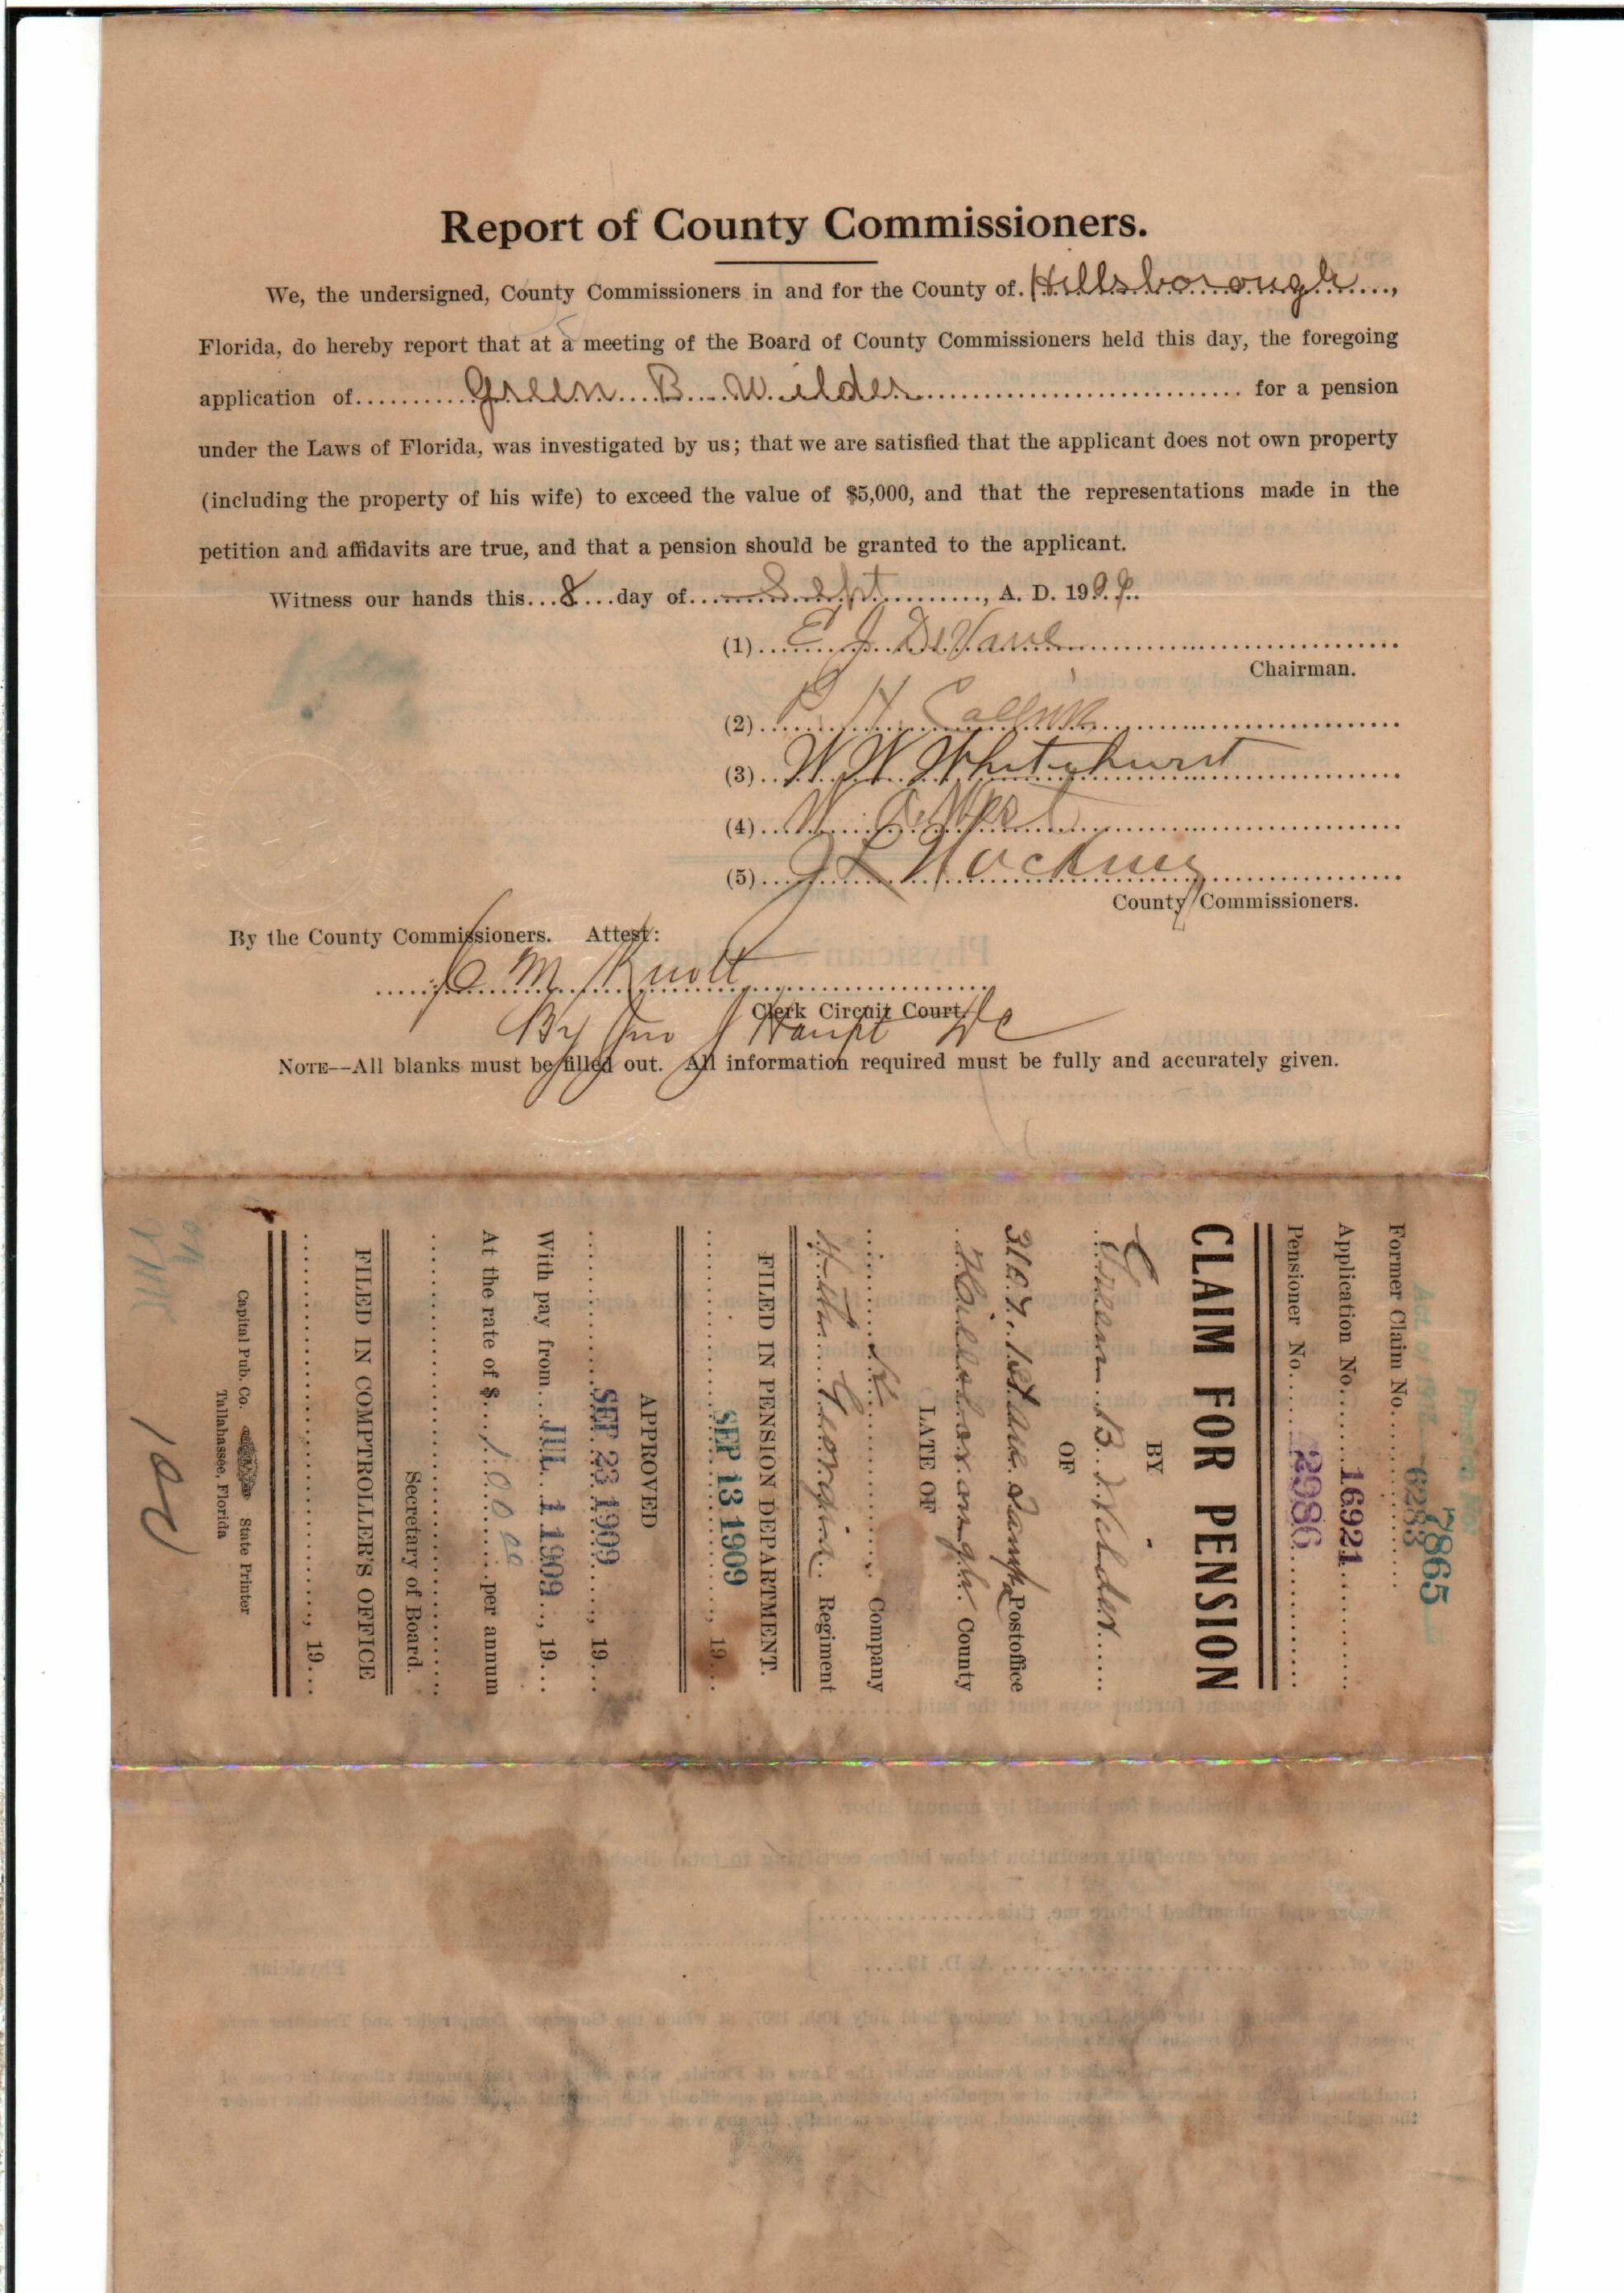 Report of County Commissioners.
We, the undersigned, County Commissioners in and for the County of Hillsborough,
Florida, do hereby report that at a meeting of the Board of County Commissioners held this day, the foregoing
application of Green B. Wilder for a pension
under the Laws of Florida, was investigated by us; that we are satisfied that the applicant does not own property
(including the property of his wife) to exceed the value of $5,000, and that the representations made in the
petition and affidavits are true, and that a pension should be granted to the applicant.
Witness our hands this 8 day of Sept, A. D. 1909.
(1) E J DeVane
Chairman.
(2) H
(3) W W Whitehurst
(4) W
(5) J L Hackney
County Commissioners.
By the County Commissioners. Attest:
M Knott
Clerk Circuit Court.
By Jno Haupt DC
NOTE--All blanks must be filled out. All information required must be fully and accurately given.
7865
Former Claim No. 6283
Application No. 16921
Pensioner No. 2986
CLAIM FOR PENSION
BY
Green B. Wilder
OF
3107. 1st Ave. Tampa Postoffice
Hillsborough County
LATE OF
K Company
4th Georgia Regiment
FILED IN PENSION DEPARTMENT.
SEP 13 1909, 19
APPROVED
SEP 23 1909, 19
With pay from JUL 1 1909, 19
At the rate of $ 100 00 per annum
Secretary of Board.
FILED IN COMPTROLLER'S OFFICE
, 19
Capital Pub. Co. State Printer
Tallahassee, Florida